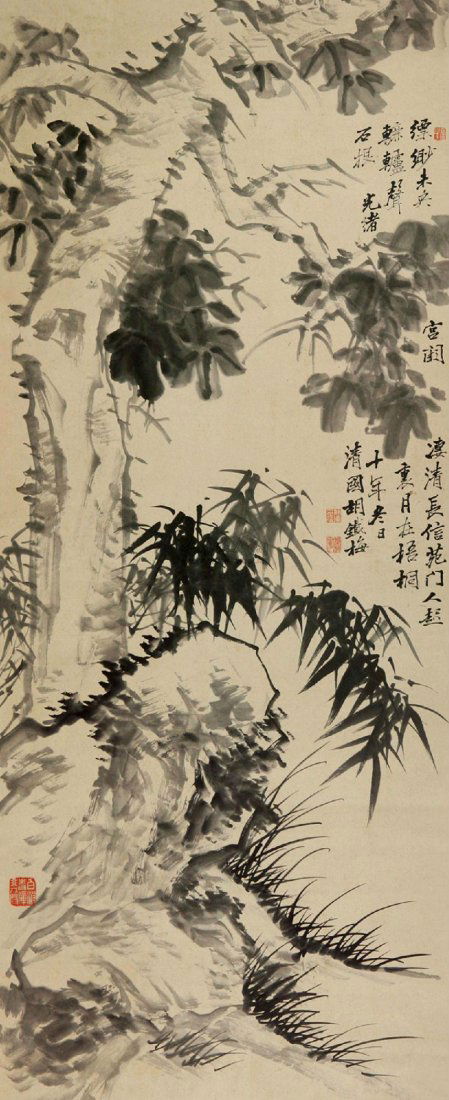 縹緲未央
宫闕
凄清長信苑门人起
轆轤聲
裏月在梧桐
石根
光緒
十年冬日
清國胡鐵梅